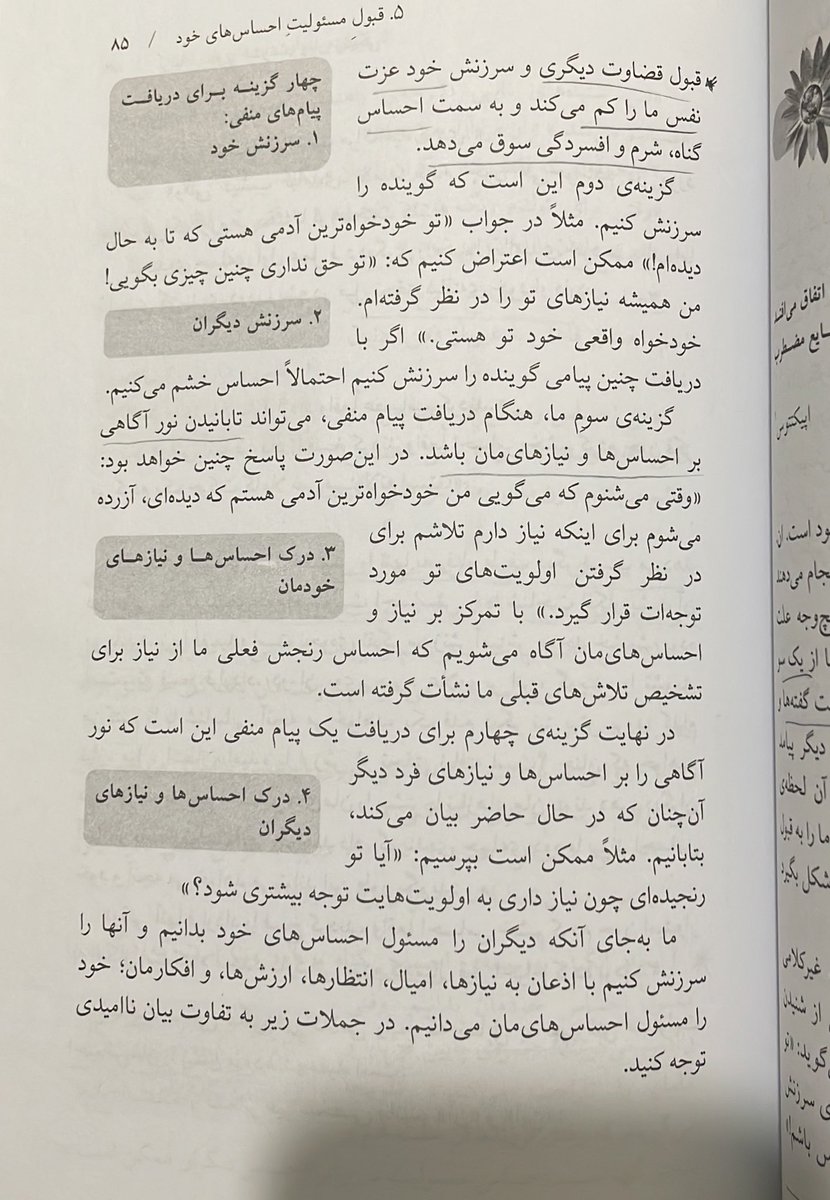 ۵. قبولِ مسئولیتِ احساس‌های خود / ۸۵
قبول قضاوت دیگری و سرزنش خود عزت
نفس ما را کم می‌کند و به سمت احساس
گناه، شرم و افسردگی سوق می‌دهد.
چهار گزینـه بـرای دریافـت
پیام‌های منفی:
۱. سرزنش خود
گزینه‌ی دوم این است که گوینده را
سرزنش کنیم. مثلاً در جواب «تو خودخواه‌ترین آدمی هستی که تا به حال
دیده‌ام!» ممکن است اعتراض کنیم که: «تو حق نداری چنین چیزی بگویی!
من همیشه نیازهای تو را در نظر گرفته‌ام.
خودخواه واقعی خود تو هستی.» اگر با
۲. سرزنش دیگران
دریافت چنین پیامی گوینده را سرزنش کنیم احتمالاً احساس خشم می‌کنیم.
گزینه‌ی سومِ ما، هنگام دریافت پیام منفی، می‌تواند تابانیدن نور آگاهی
بر احساس‌ها و نیازهای‌مان باشد. در این‌صورت پاسخ چنین خواهد بود:
«وقتی می‌شنوم که می‌گویی من خودخواه‌ترین آدمی هستم که دیده‌ای، آزرده
می‌شوم برای اینکه نیاز دارم تلاشم برای
در نظر گرفتن اولویت‌های تو مورد
توجه‌ات قرار گیرد.» با تمرکز بر نیاز و
۳. درک احساس‌هـا و نیازهـای
خودمان
احساس‌های‌مان آگاه می‌شویم که احساس رنجش فعلی ما از نیاز برای
تشخیص تلاش‌های قبلی ما نشأت گرفته است.
در نهایت گزینه‌ی چهارم برای دریافت یک پیام منفی این است که نور
آگاهی را بر احساس‌ها و نیازهای فرد دیگر
آن‌چنان که در حال حاضر بیان می‌کند،
بتابانیم. مثلاً ممکن است بپرسیم: «آیا تو
۴. درک احساس‌ها و نیازهای
دیگران
رنجیده‌ای چون نیاز داری به اولویت‌هایت توجه بیشتری شود؟»
ما به‌جای آنکه دیگران را مسئول احساس‌های خود بدانیم و آنها را
سرزنش کنیم با اذعان به نیازها، امیال، انتظارها، ارزش‌ها، و افکارمان؛ خود
را مسئول احساس‌های‌مان می‌دانیم. در جملات زیر به تفاوت بیان ناامیدی
توجه کنید.
اتفاق می‌افتد
مضطرب
اپیکتتوس
ود است. ان
انجام می‌دهند
چ‌وجه علت
ا از یک سو
ت گفته‌ها و
دیگر پیامد
آن لحظه‌ی
ما را به قبول
شکل بگیرد
غیرکلامی
از شنیدن
ی‌گوید: «تو
ی سرزنش
س باشم!»